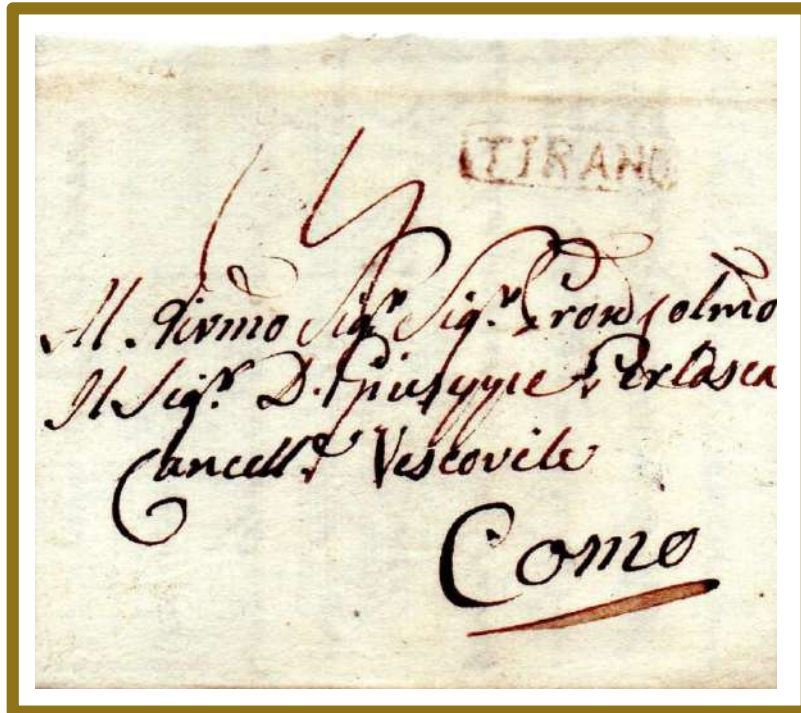 TIRANO
Al. Sig.r Sig.r Pron Colmo
Il Sig.r D. Giuseppe Perlasca
Cancell.e Vescovile
Como